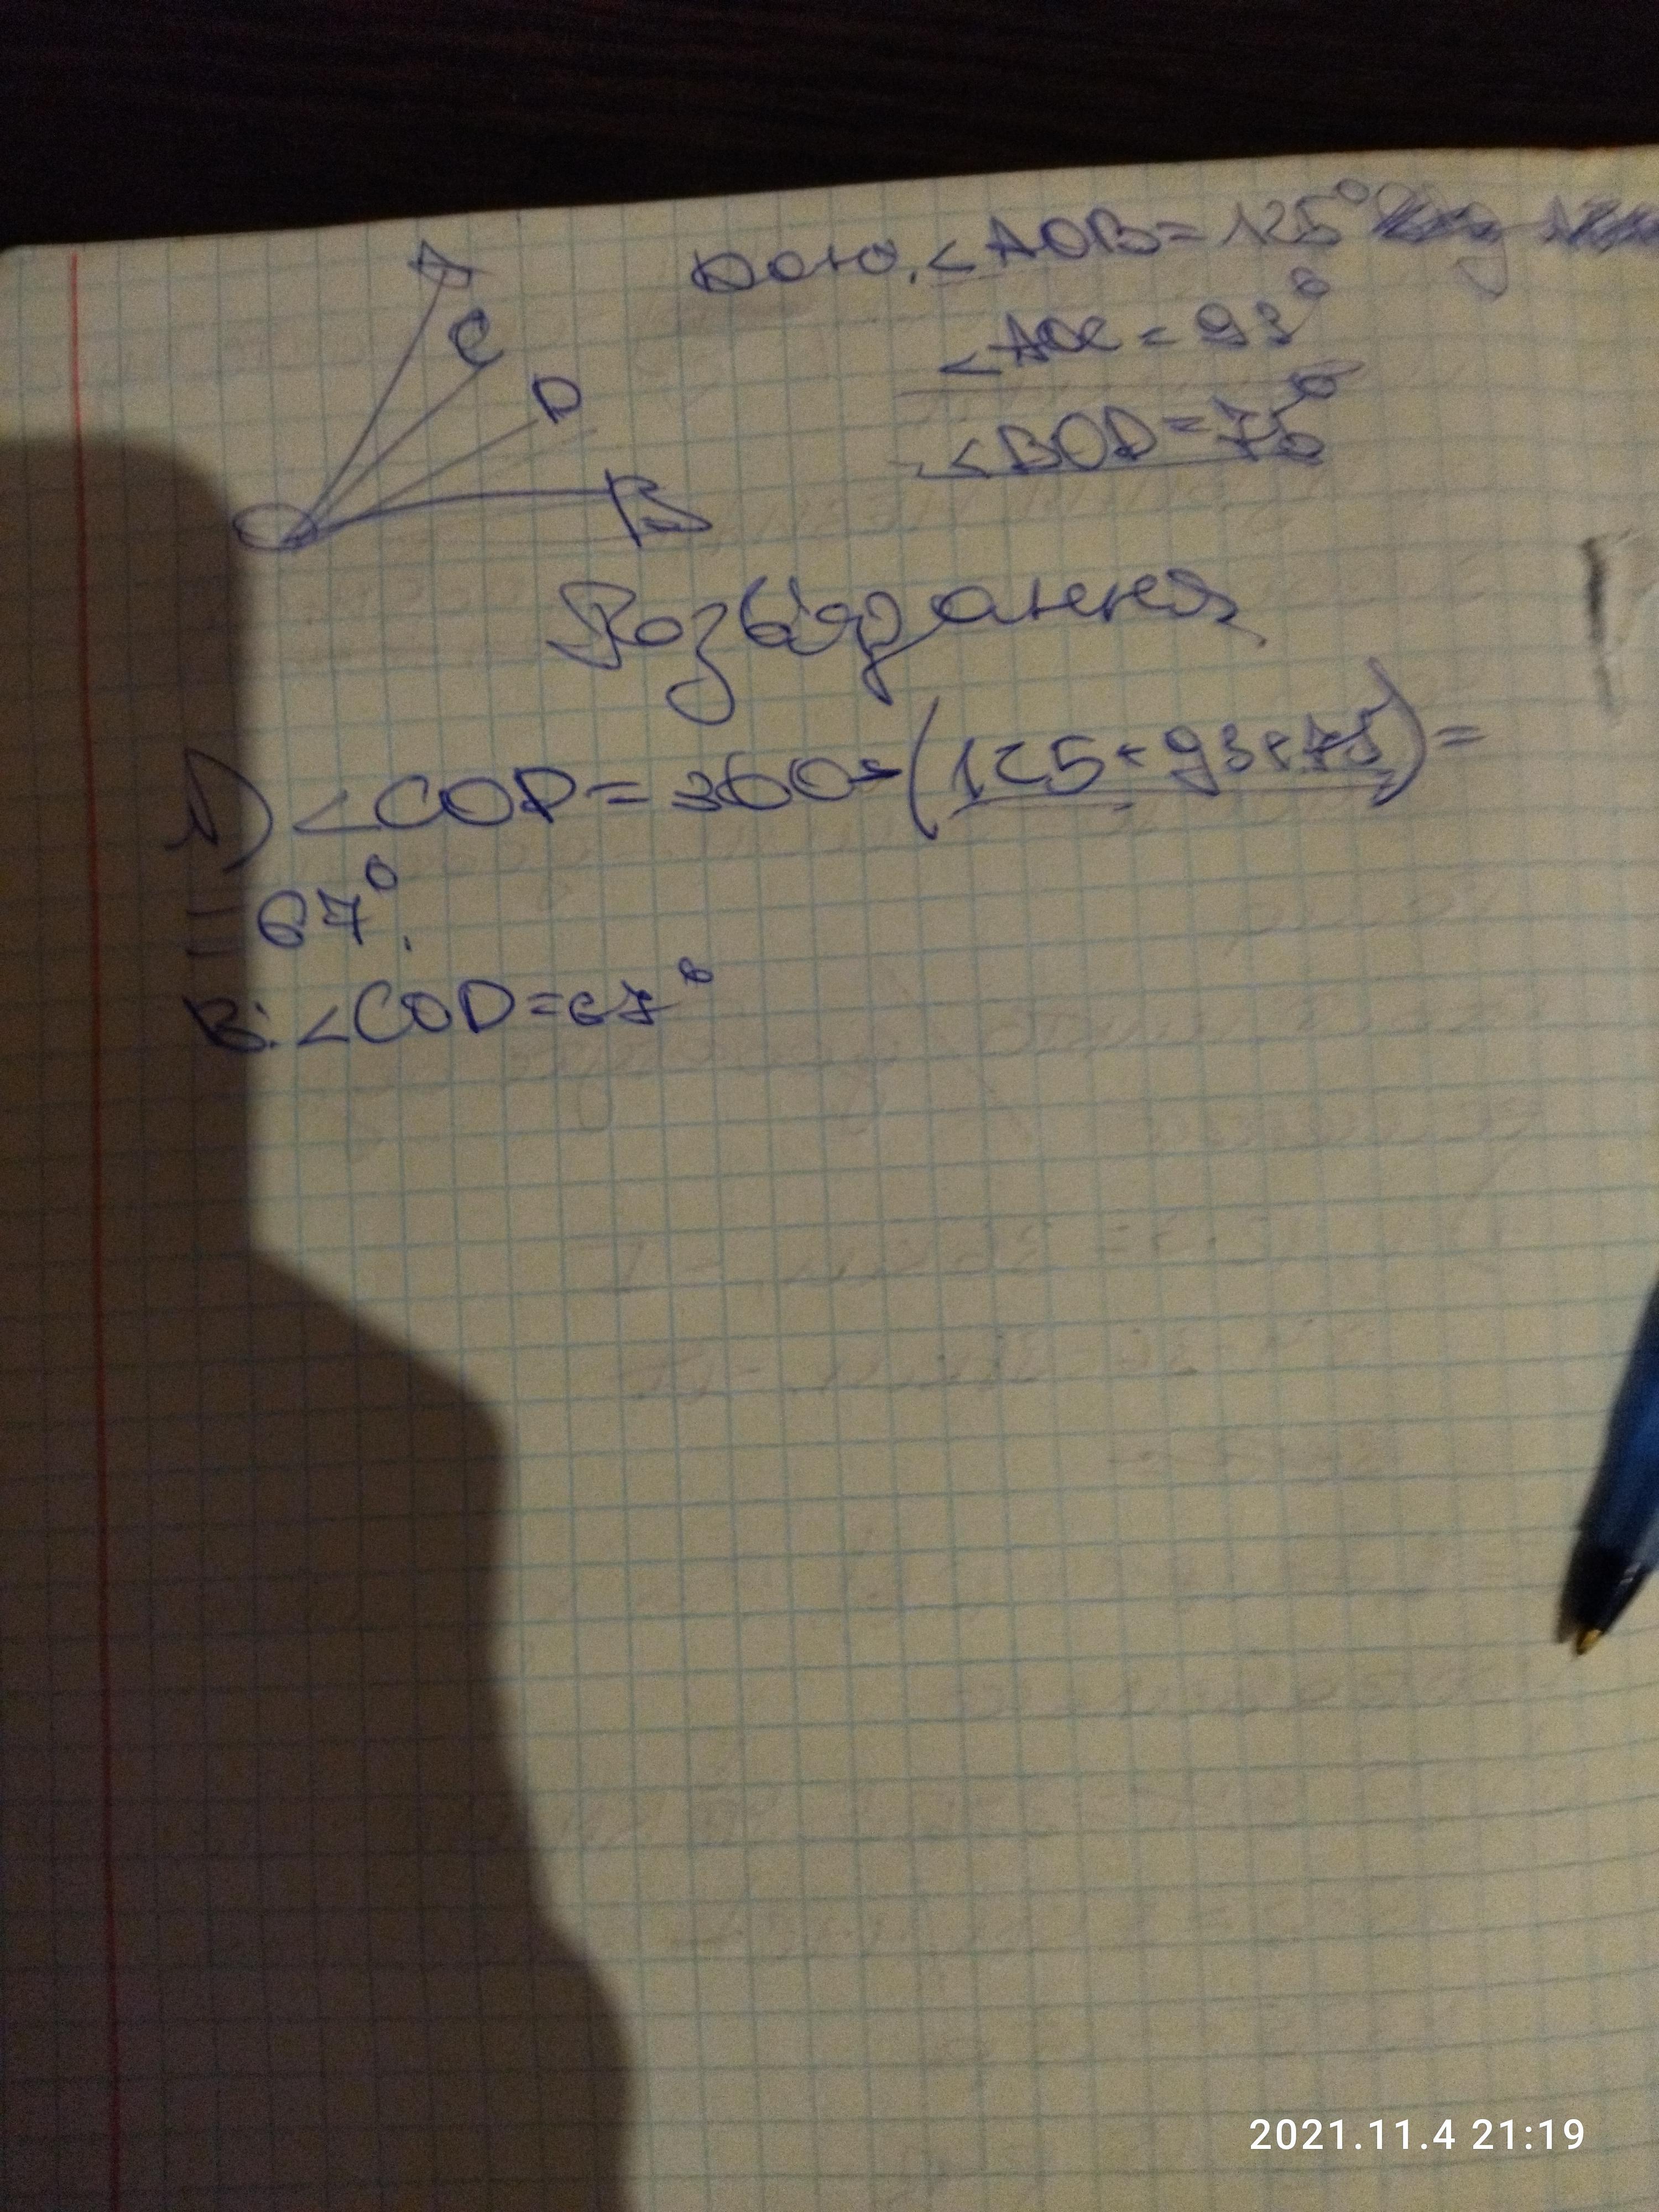 A
C
D
B
O
Дано: <AOB=125°
<AOC=93°
<BOD=75°
Розв'язання
1) <COD=360-(125+93+75)=
=67°.
В: <COD=67°
2021.11.4 21:19